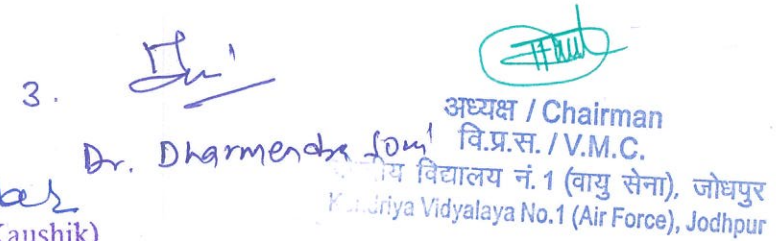 3.
Dr. Dharmendra Soni
Kaushik)
अध्यक्ष / Chairman
वि.प्र.स. / V.M.C.
विद्यालय नं. 1 (वायु सेना), जोधपुर
Vidyalaya No.1 (Air Force), Jodhpur